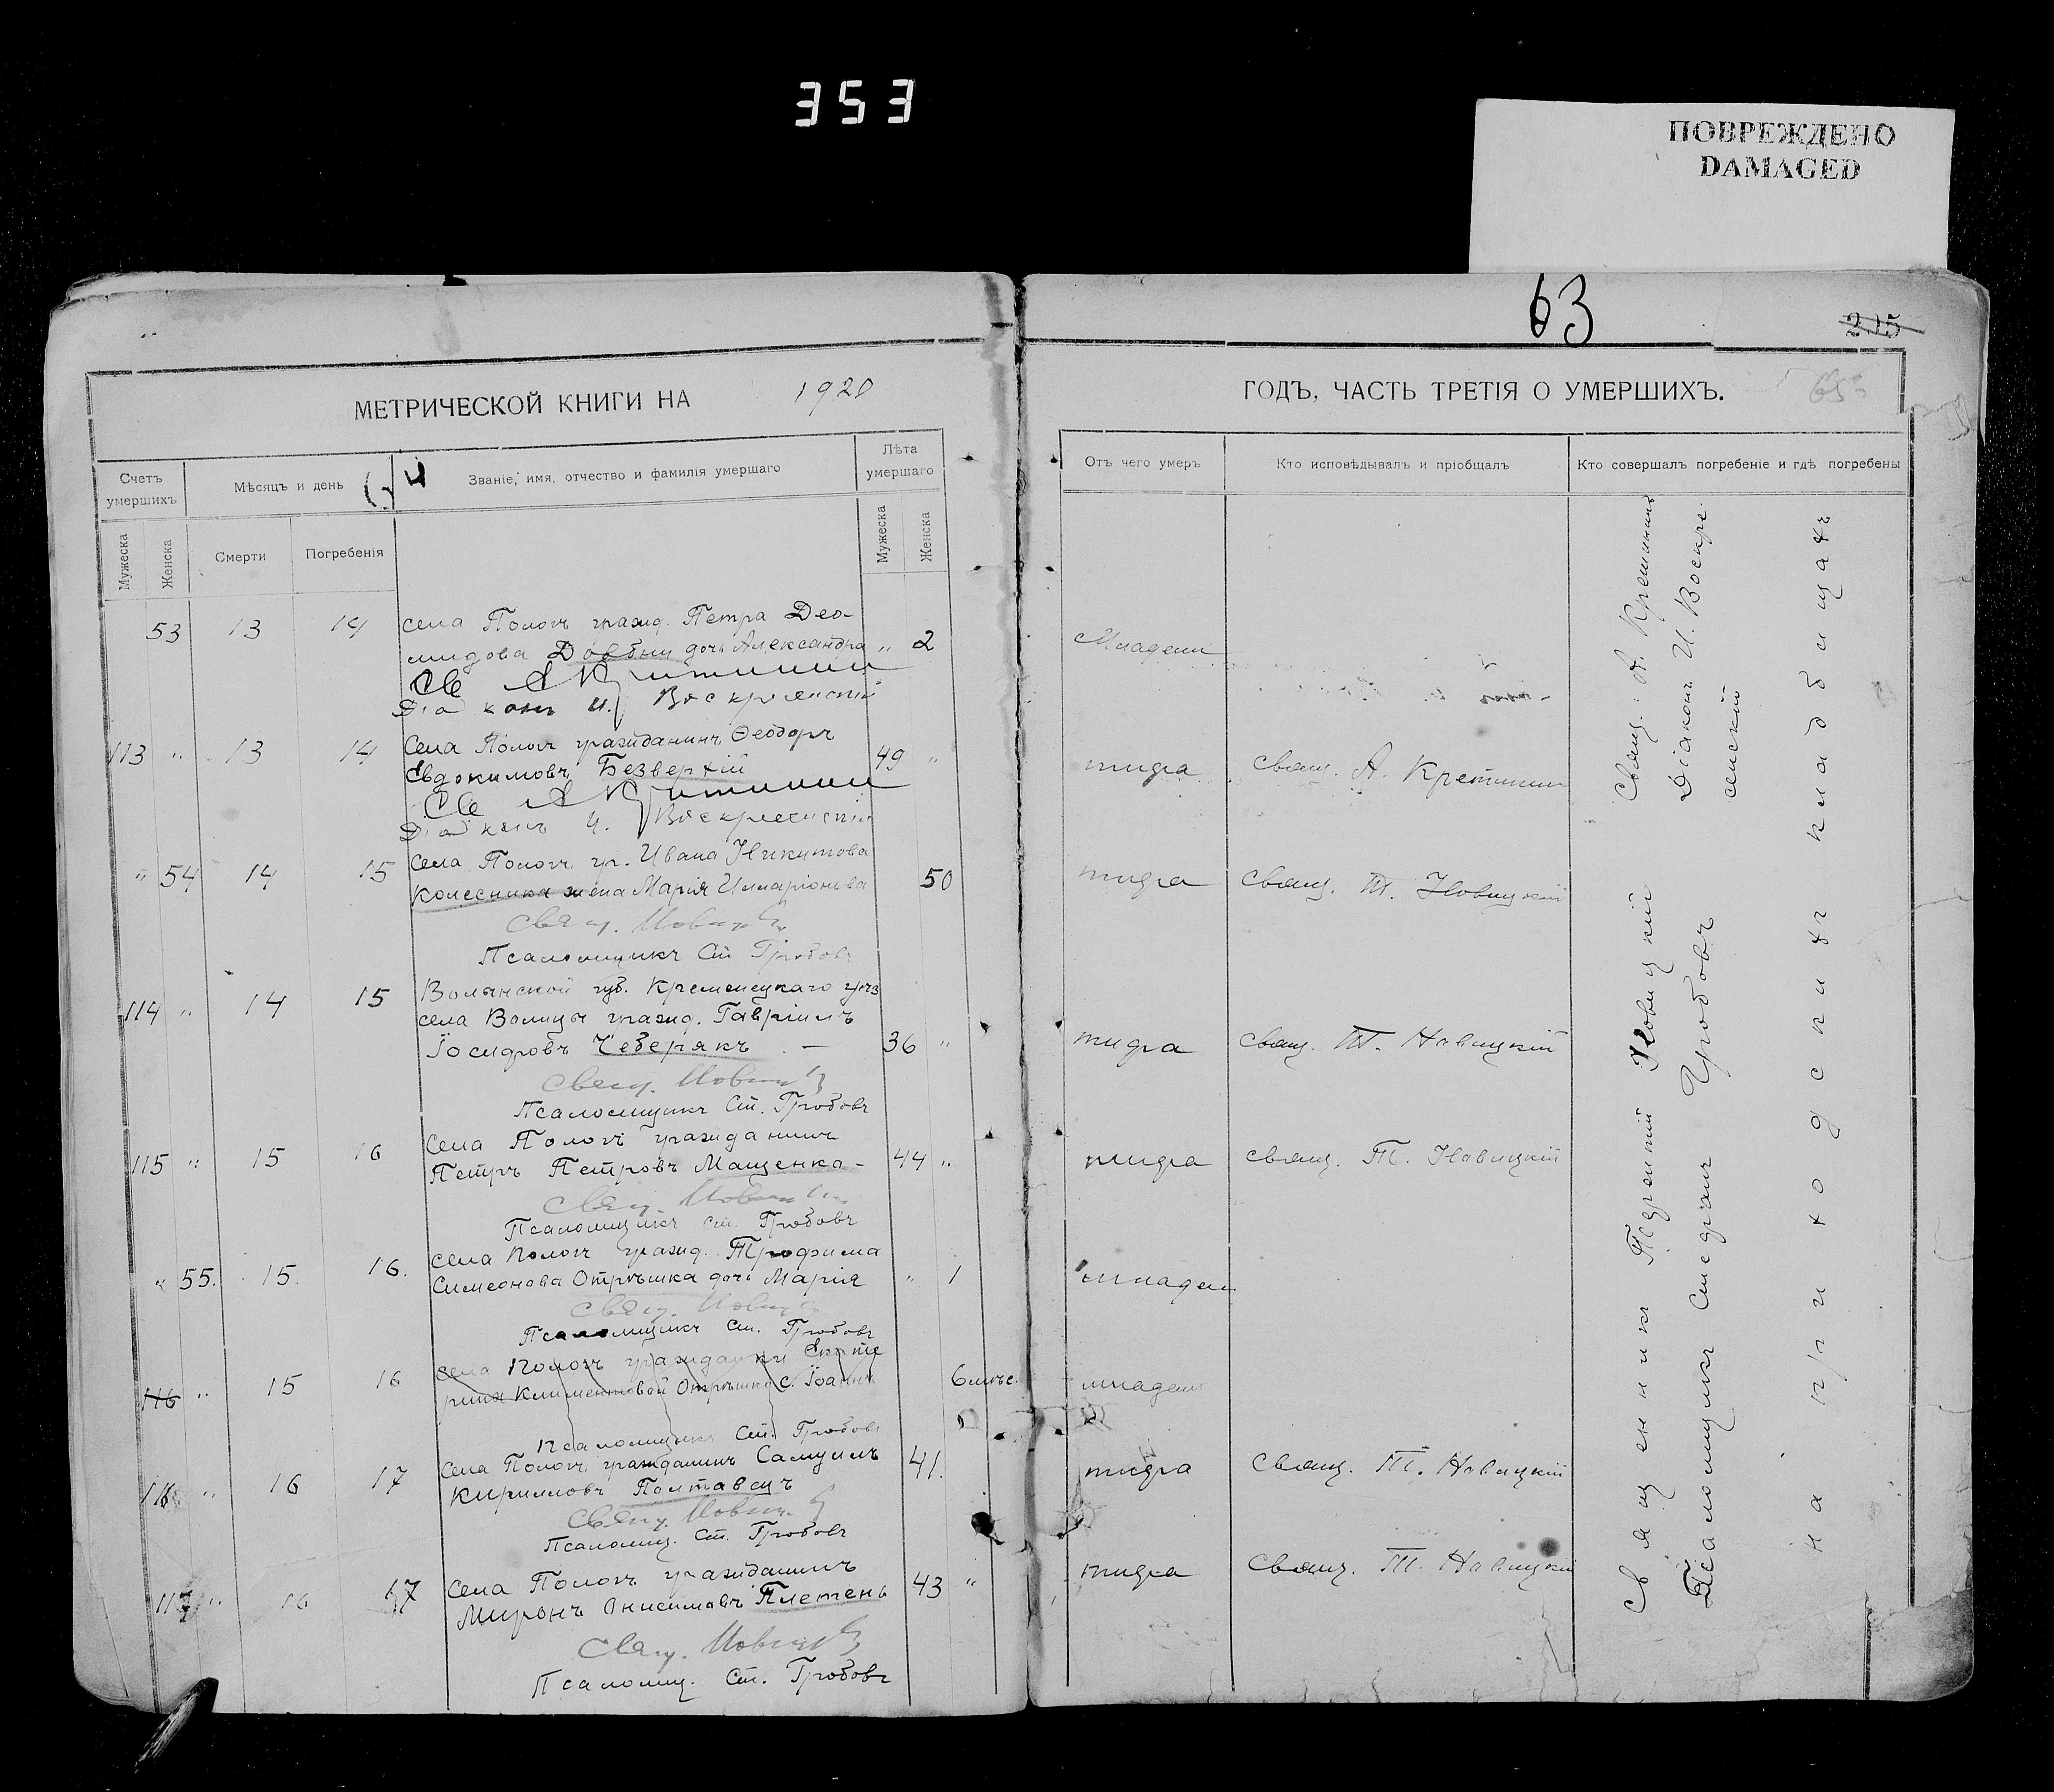 353
ПОВРЕЖДЕНО
DAMAGED
63
205
МЕТРИЧЕСКОЙ КНИГИ НА 1920
ГОДЪ, ЧАСТЬ ТРЕТІЯ О УМЕРШИХЪ.
Счетъ умершихъ
Мѣсяцъ и день
Званіе, имя, отчество и фамилія умершаго
Лѣта умершаго
Мужеска
Женска
Смерти
Погребенія
Мужеска
Женска
Отъ чего умеръ
Кто исповѣдывалъ и пріобщалъ
Кто совершалъ погребеніе и гдѣ погребены
53 13 14 села Пологъ гражд. Петра Део-
мидова Довбни дочь Александра " 2 Младени
Св А Кретинин
Діаконъ И. Воскресенскій
113 " 13 14 Села Пологъ гражданинъ Ѳеодоръ
Евдокимовъ Безверхій 49 " тифа Свящ. А. Кретинин
Св А Кретинин
Діаконъ И. Воскресенскій
" 54 14 15 Села Пологъ гр. Ивана Никитова
Колесника жена Марія Илларіонова 50 тифа Свящ. П. Новицкій
Свящ. Новицкій
Псаломщикъ Ст. Гробовъ
114 " 14 15 Волынской губ. Кременецкаго уѣз
села Волицы гражд. Гавріилъ
Іосифовъ Чеберякъ. — 36 " тифа Свящ. П. Новицкій
Свящ. Новицкій
Псаломщикъ Ст. Гробовъ
115 " 15 16 Села Пологъ гражданинъ
Петръ Петровъ Мащенка- 44 " тифа Свящ. П. Новицкій
Свящ. Новицкій
Псаломщикъ Ст. Гробовъ
" 55. 15. 16. Села Пологъ гражд. Трофима
Симеонова Отрѣшка дочь Марія " 1 младен
Свящ. Новицкій
Псаломщикъ Ст. Гробовъ
116 " 15 16 Села Пологъ гражданки Екате
рины Климентовой Отрѣшко с. Іоаннъ 6 мѣс. младен
Псаломщикъ Ст. Гробовъ
116 " 16 17 Села Пологъ гражданинъ Самуилъ
Кирилловъ Полтавецъ 41. тифа Свящ. П. Новицкій
Свящ. Новицкій
Псаломщ. Ст. Гробовъ
117 " 16 17 Села Пологъ гражданинъ
Миронъ Онисимовъ Плетень 43 " тифа Свящ. П. Новицкій
Свящ. Новицкій
Псаломщ. Ст. Гробовъ
Свящ.: А. Кретининъ
Діаконъ И. Воскре-
сенскій
Священникъ Новицкій
Псаломщикъ Стефанъ Гробовъ
на приходскихъ кладбищахъ